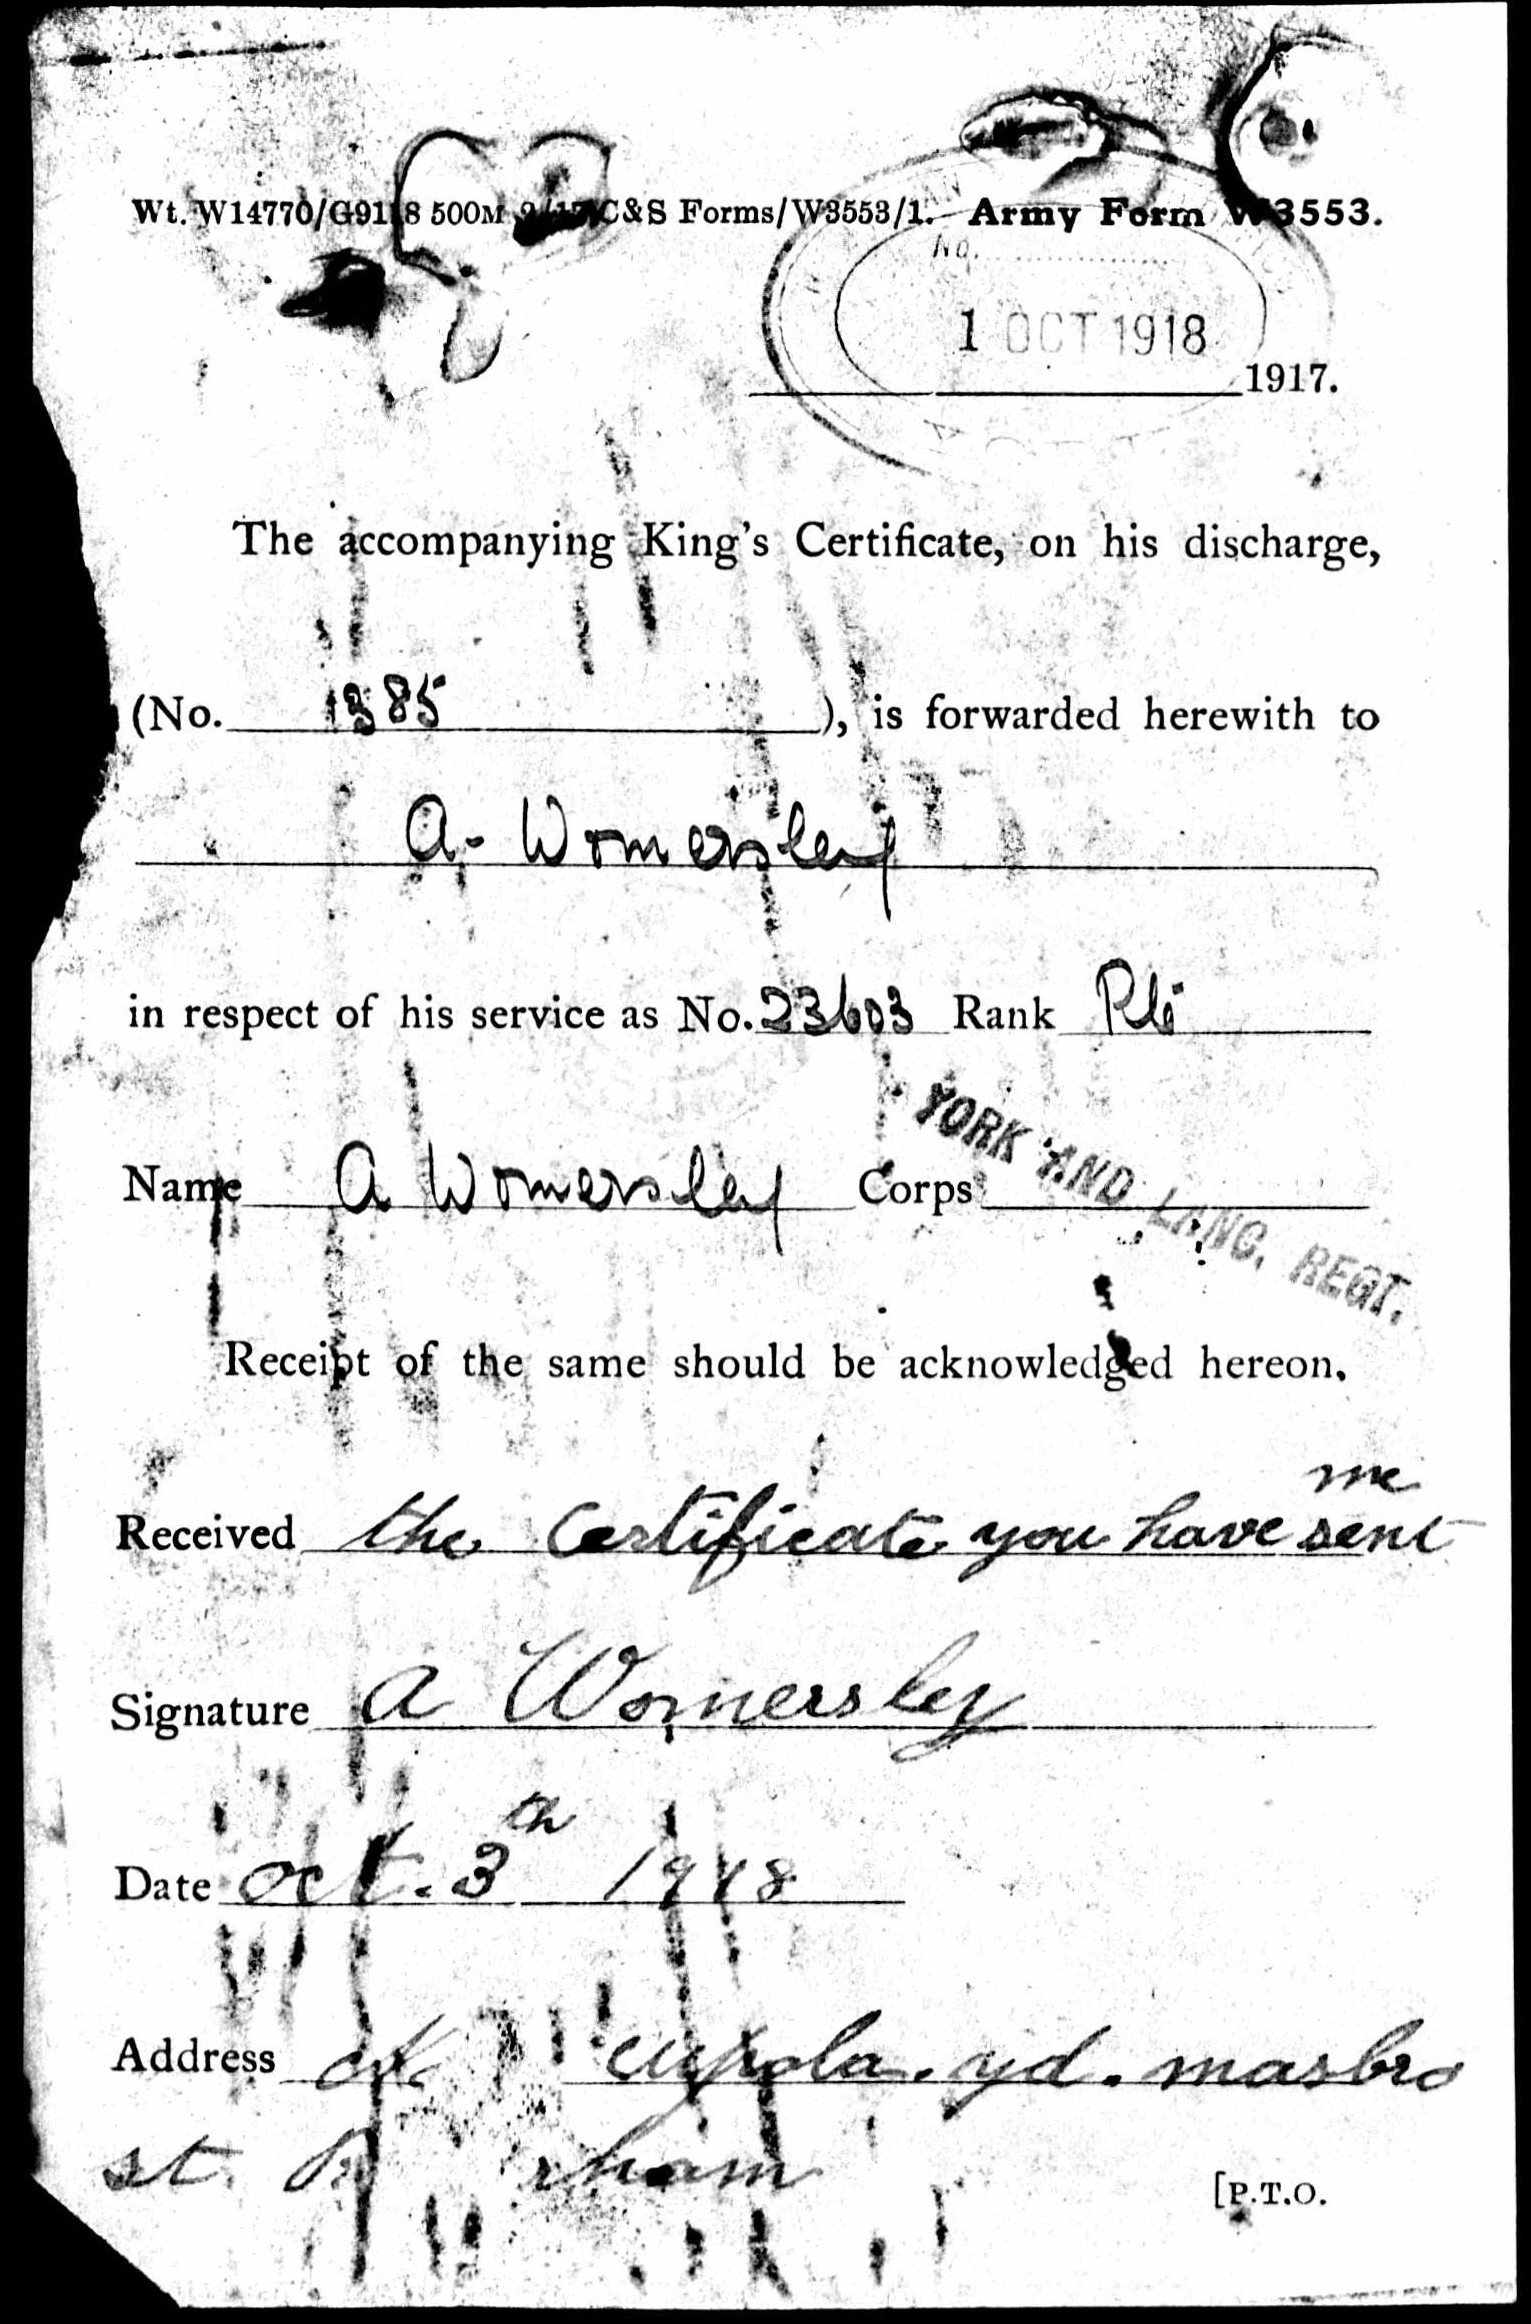 Wt. W14770/G9118 500M 2/17 C&S Forms/W3553/1. Army Form W3553.
No.
1 OCT 1918
1917.
The accompanying King's Certificate, on his discharge,
(No. 1385 ), is forwarded herewith to
A. Womersley
in respect of his service as No. 23603 Rank Pte
Name A Womersley Corps YORK AND LANC. REGT.
Receipt of the same should be acknowledged hereon.
me
Received the Certificate you have sent
Signature A Womersley
Date Oct. 3th 1918
Address cupola. yd. masbro
st.
[P.T.O.